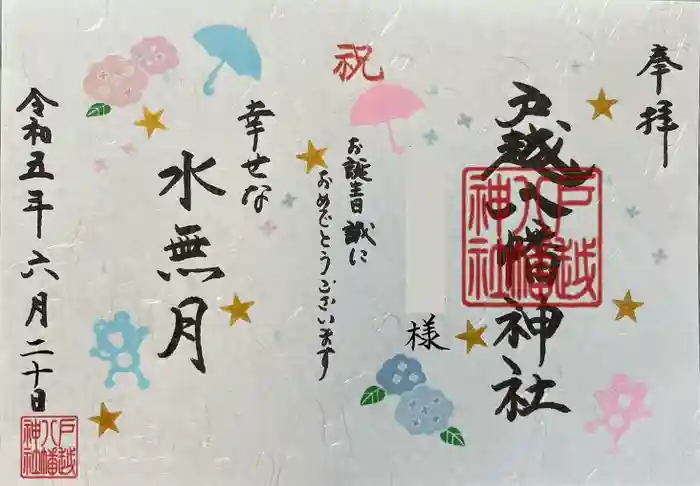 奉拝
戸越八幡神社
戸越八幡神社
祝
様
お誕生日誠に
おめでとうございます
幸せな
水無月
令和五年六月二十日
戸越八幡神社